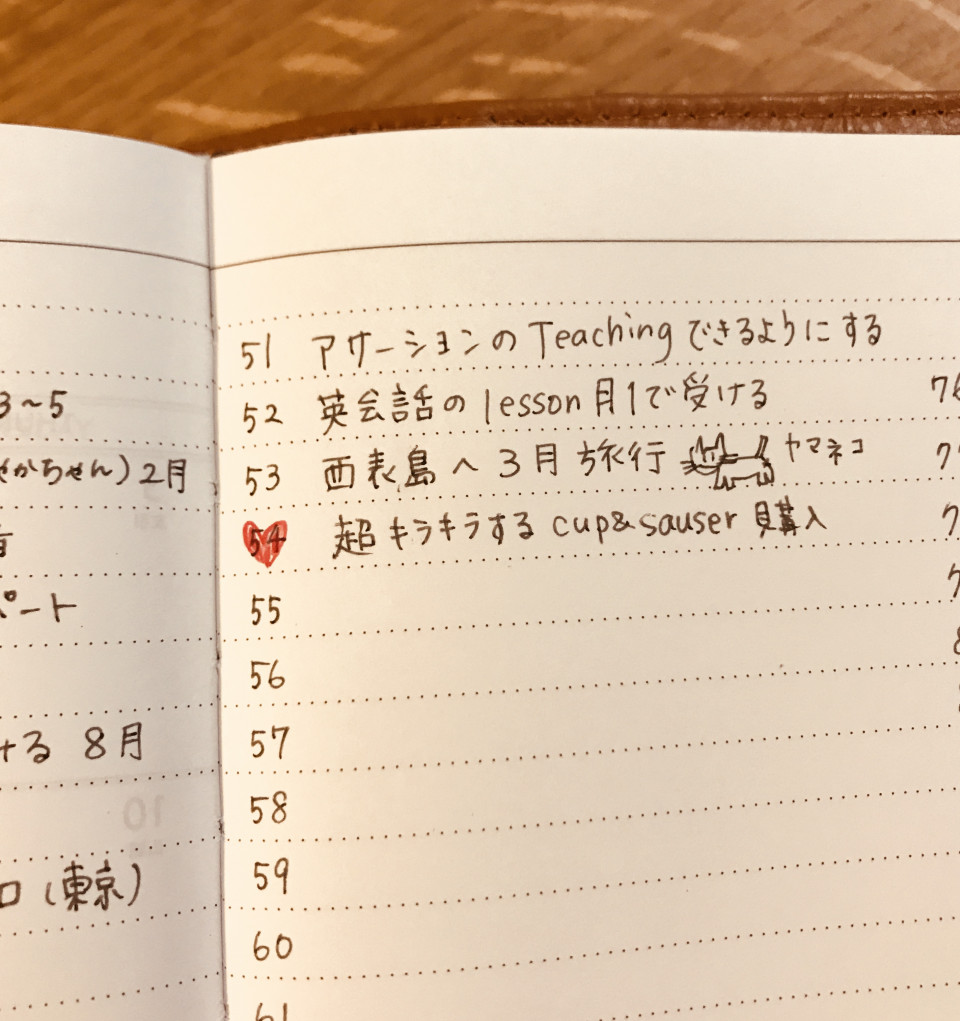 3~5
かちゃん) 2月
ート
ける 8月
ロ (東京)
51 アサーションの Teaching できるようにする
52 英会話の lesson 月1で受ける
53 西表島へ 3月 旅行 ヤマネコ
54 超キラキラする cup&sauser 購入
55
56
57
58
59
60
61